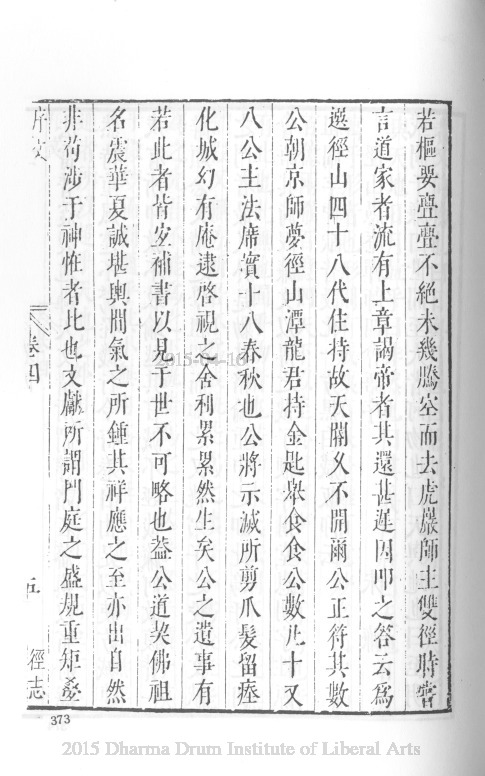 若樞要亹亹不絕未幾騰空而去虎巖師主雙徑時嘗
言道家者流有上章謁帝者其還甚遲因叩之答云爲
選徑山四十八代住持故天關久不開爾公正符其數
公朝京師夢徑山潭龍君持金匙舉食食公數凡十又
八公主法席實十八春秋也公將示滅所剪爪髮留瘞
化城幻有庵逮啓視之舍利累累然生矣公之遺事有
若此者皆宜補書以見于世不可略也葢公道契佛祖
名震華夏誠堪輿間氣之所鍾其祥應之至亦出自然
非苟涉于神怪者比也文獻所謂門庭之盛規重矩疊
序文 卷四 五 徑志
373
2015-04-16
2015 Dharma Drum Institute of Liberal Arts